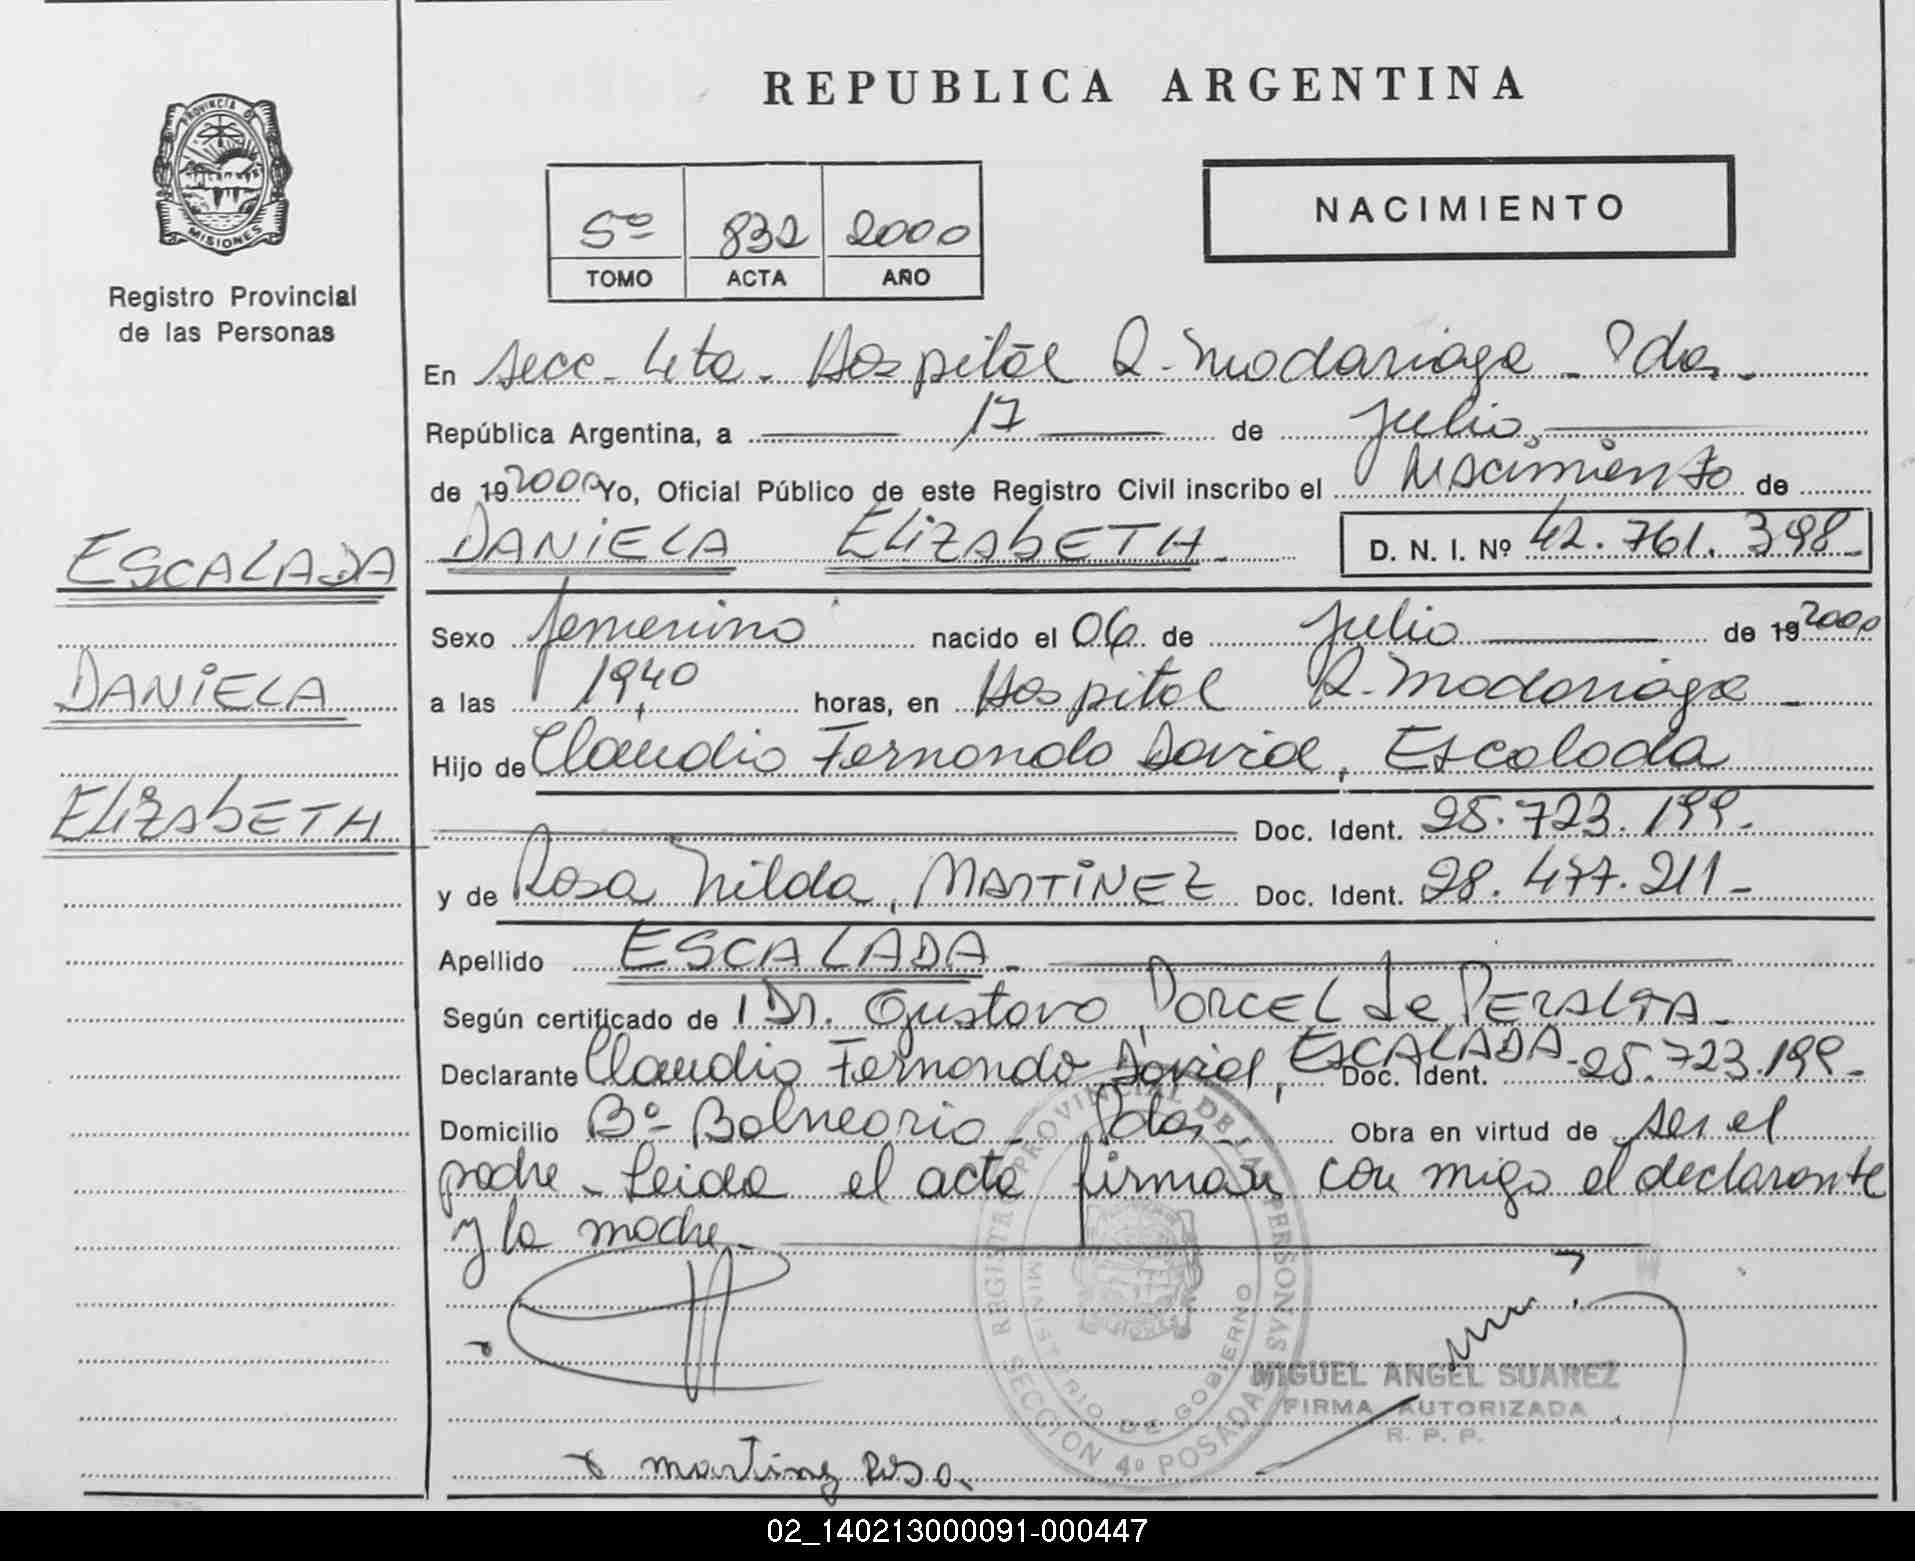 REPUBLICA ARGENTINA
PROVINCIA DE
MISIONES
Registro Provincial
de las Personas
5º 832 2000
TOMO ACTA AÑO
NACIMIENTO
En secc. 4ta. Hospital R. Madariaga - Pdas.
República Argentina, a 17 de Julio
de 19 2000 Yo, Oficial Público de este Registro Civil inscribo el nacimiento de
DANiELA ELiZAbETH - D. N. I. Nº 42.761.398-
ESCALADA
DANiELA
ELiZAbETH
Sexo femenino nacido el 06 de Julio de 19 2000
a las 19,40 horas, en Hospital R. Madariaga -
Hijo de Claudio Fernando David, Escalada
Doc. Ident. 25.723.199.
y de Rosa Nilda, MARTiNEZ Doc. Ident. 28.477.211-
Apellido ESCALADA -
Según certificado de l Dr. Gustavo, PORCEL de PERALTA -
Declarante Claudio Fernando David, ESCALADA - Doc. Ident. 25.723.199.-
Domicilio Bº Balneario - Pdas - Obra en virtud de ser el
padre - Leida el acta firman con migo el declarante
y la madre -
REGISTRO PROVINCIAL DE LAS PERSONAS
MINISTERIO DE GOBIERNO
SECCION 4º POSADAS
MIGUEL ANGEL SUAREZ
FIRMA AUTORIZADA
R. P. P.
x martinez Rosa.
02_140213000091-000447